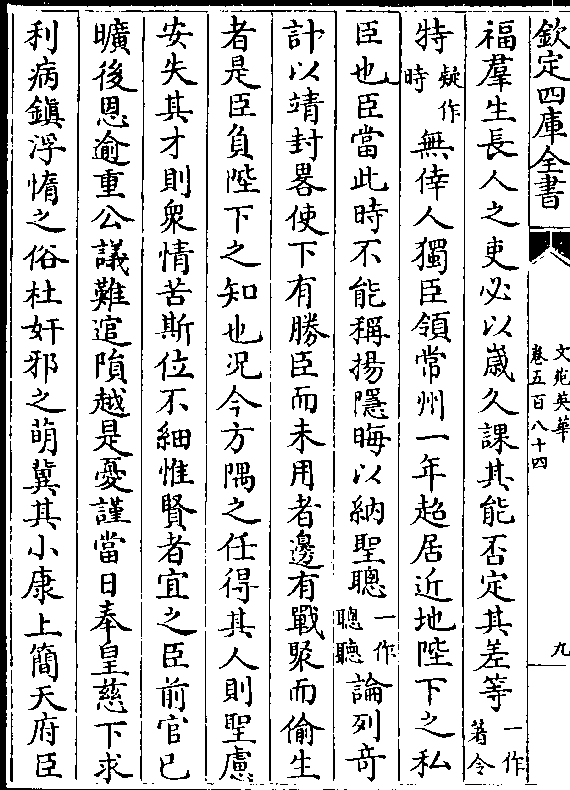 欽定四庫全書
文苑英華
卷五百八十四
九
福羣生長人之吏必以歲久課其能否定其差等一作著令
特疑作時無倖人獨臣領常州一年超居近地陛下之私
臣也臣當此時不能稱揚隱晦以納聖聰一作聰聽論列竒
計以靖封畧使下有勝臣而未用者邊有戰聚而偷生
者是臣負陛下之知也况今方隅之任得其人則聖慮
安失其才則衆情苦斯位不細惟賢者宜之臣前官已
曠後恩逾重公議難逭隕越是憂謹當日奉皇慈下求
利病鎮浮惰之俗杜奸邪之萌冀其小康上簡天府臣